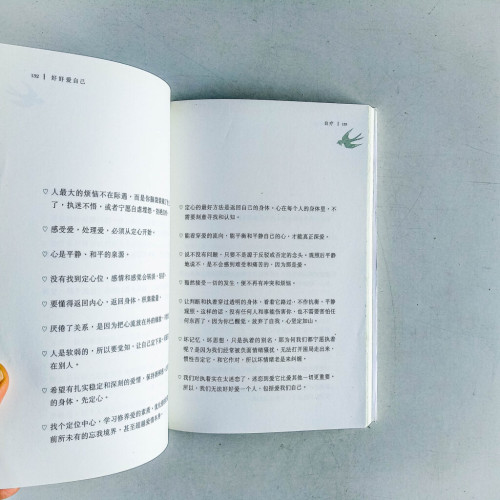 192 | 好好爱自己
♡ 人最大的烦恼不在际遇，而是你
了，执迷不悟，或者宁愿自虐埋怨，
♡ 感受爱，处理爱，必须从定心开始。
♡ 心是平静、和平的来源。
♡ 没有找到定心位，感情和感觉会
♡ 要懂得返回内心，返回身体，
♡ 厌倦了关系，是因为把心流放在外
♡ 人是软弱的，所以要觉知，让自己定下来，
在别人。
♡ 希望有扎实稳定和深刻的爱情，
的身体，先定心。
♡ 找个定位中心，学习修养爱的
前所未有的忘我境界，甚至超越
自疗 | 193
♡ 定心的最好方法是返回自己的身体，心在每个人的身体里，不
需要刻意寻找和认知。
♡ 能看穿爱的流向，能平衡和平静自己的心，才能真正深爱。
♡ 说不没有问题，只要不是源于反驳或否定的念头，谦然后平静
地说不，是不会感到难受和痛苦的，因为那是爱。
♡ 豁然接受一切的发生，便不再有冲突和烦恼。
♡ 让判断和执着穿过透明的身体，看着它掠过，不作抗衡，平静
观照。这样的话，没有任何人和事能伤害你，也不需要害怕任
何东西了，因为你已醒觉，放弃了自我，心坚定如山。
♡ 坏记忆，坏思想，只是执着的别名，为何我们都宁愿执着
呢？是因为我们经常被负面情绪骚扰，无法打开困局走出来，
惯性否定它，和它作对，所以坏情绪老是来纠缠。
♡ 我们对执着实在太迷恋了，迷恋到爱它比爱其他一切更重要，
所以，我们无法好好爱一个人，包括爱我们自己。